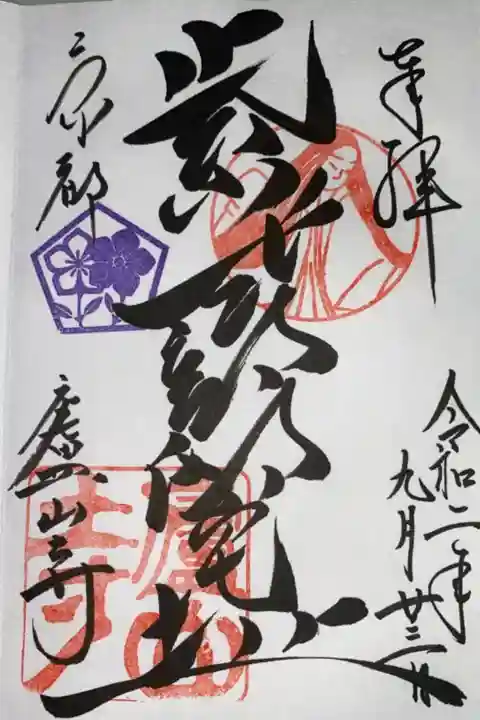 奉拝
令和二年
九月廿三日
紫式部邸宅址
京都
廬山寺